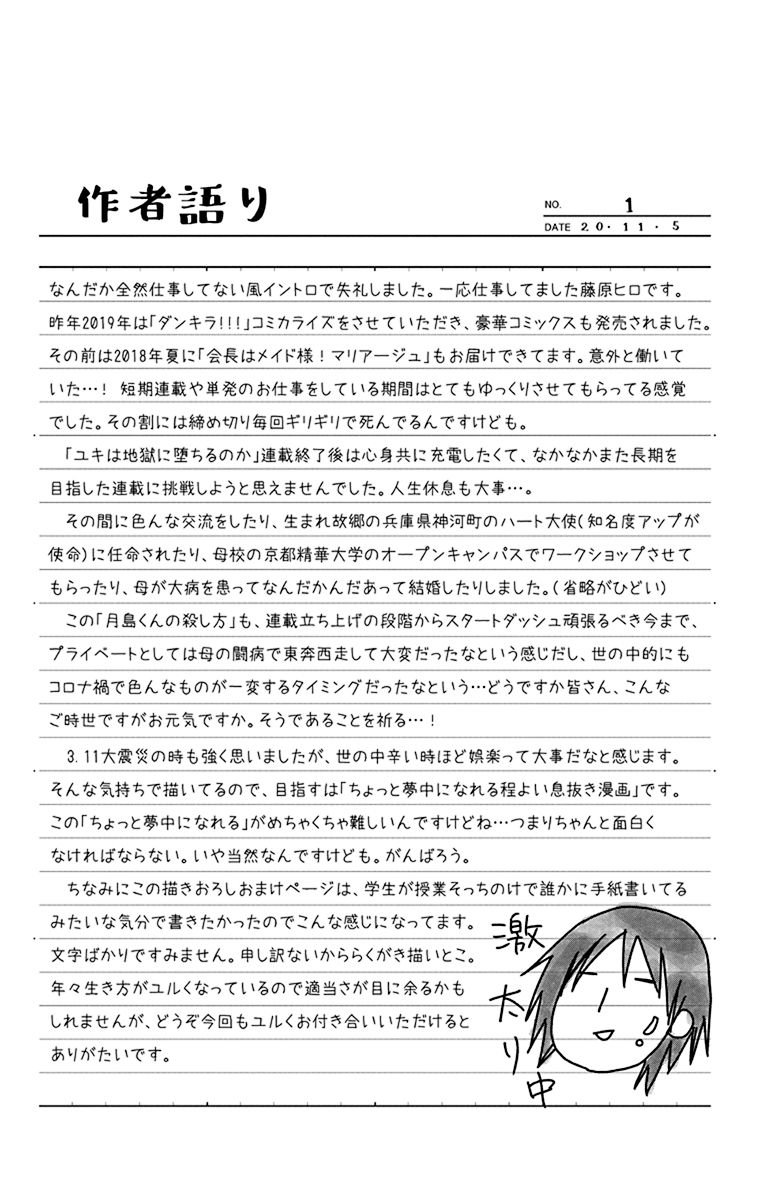 作者語り
NO. 1
DATE 20・11・5
なんだか全然仕事してない風イントロで失礼しました。一応仕事してました藤原ヒロです。
昨年2019年は「ダンキラ!!!」コミカライズをさせていただき、豪華コミックスも発売されました。
その前は2018年夏に「会長はメイド様！マリアージュ」もお届けできてます。意外と働いて
いた…！ 短期連載や単発のお仕事をしている期間はとてもゆっくりさせてもらってる感覚
でした。その割には締め切り毎回ギリギリで死んでるんですけども。
「ユキは地獄に堕ちるのか」連載終了後は心身共に充電したくて、なかなかまた長期を
目指した連載に挑戦しようと思えませんでした。人生休息も大事…。
その間に色んな交流をしたり、生まれ故郷の兵庫県神河町のハート大使(知名度アップが
使命)に任命されたり、母校の京都精華大学のオープンキャンパスでワークショップさせて
もらったり、母が大病を患ってなんだかんだあって結婚したりしました。(省略がひどい)
この「月島くんの殺し方」も、連載立ち上げの段階からスタートダッシュ頑張るべき今まで、
プライベートとしては母の闘病で東奔西走して大変だったなという感じだし、世の中的にも
コロナ禍で色んなものが一変するタイミングだったなという…どうですか皆さん、こんな
ご時世ですがお元気ですか。そうであることを祈る…！
3.11大震災の時も強く思いましたが、世の中辛い時ほど娯楽って大事だなと感じます。
そんな気持ちで描いてるので、目指すは「ちょっと夢中になれる程よい息抜き漫画」です。
この「ちょっと夢中になれる」がめちゃくちゃ難しいんですけどね…つまりちゃんと面白く
なければならない。いや当然なんですけども。がんばろう。
ちなみにこの描きおろしおまけページは、学生が授業そっちのけで誰かに手紙書いてる
みたいな気分で書きたかったのでこんな感じになってます。
文字ばかりですみません。申し訳ないかららくがき描いとこ。
年々生き方がユルくなっているので適当さが目に余るかも
しれませんが、どうぞ今回もユルくお付き合いいただけると
ありがたいです。
激太り中